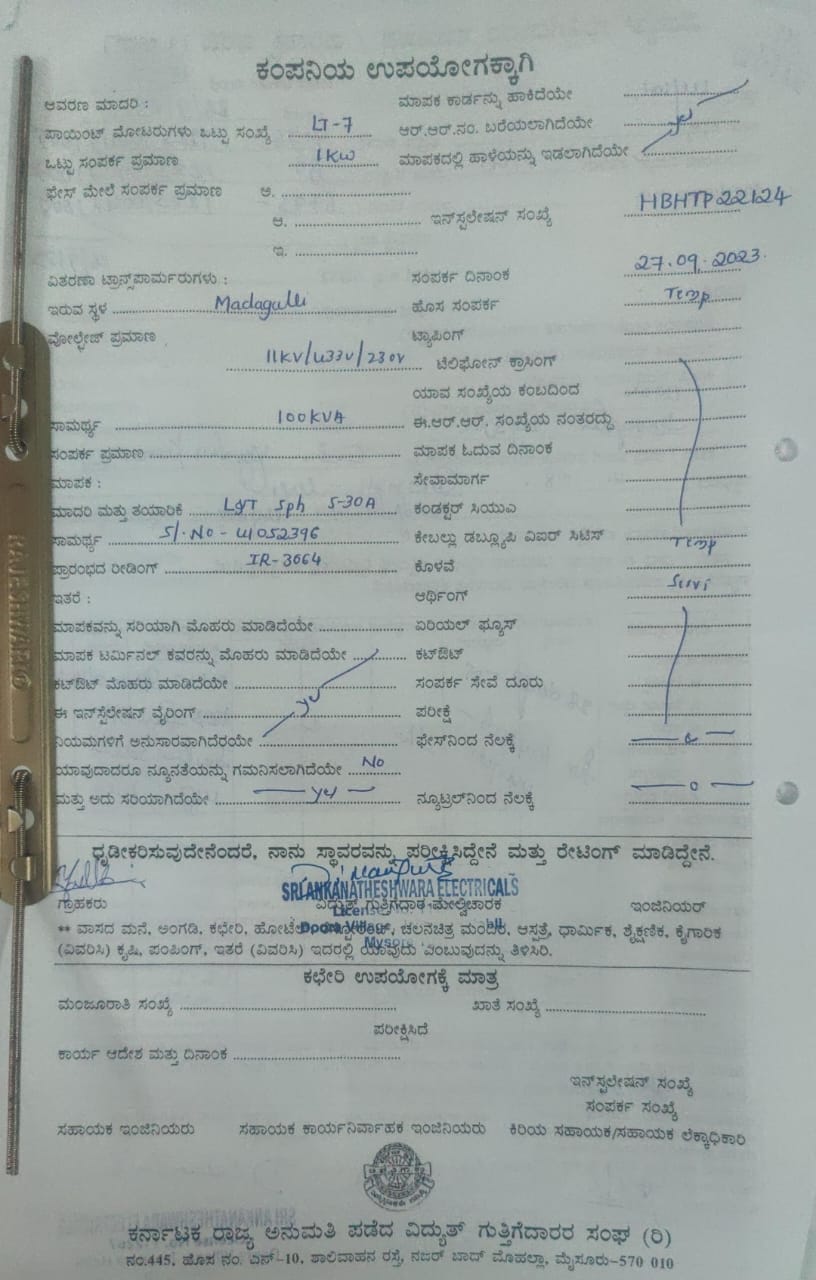 ಕಂಪನಿಯ ಉಪಯೋಗಕ್ಕಾಗಿ
ಆವರಣ ಮಾದರಿ : ಮಾಪಕ ಕಾರ್ಡನ್ನು ಹಾಕಿದೆಯೇ
ಪಾಯಿಂಟ್ ಮೋಟರುಗಳು ಒಟ್ಟು ಸಂಖ್ಯೆ LT-7 ಆರ್.ಆರ್.ನಂ. ಬರೆಯಲಾಗಿದೆಯೇ
ಒಟ್ಟು ಸಂಪರ್ಕ ಪ್ರಮಾಣ 1KW ಮಾಪಕದಲ್ಲಿ ಹಾಳೆಯನ್ನು ಇಡಲಾಗಿದೆಯೇ
ಫೇಸ್ ಮೇಲೆ ಸಂಪರ್ಕ ಪ್ರಮಾಣ ಅ.
ಆ. ಇನ್‌ಸ್ಟಲೇಷನ್ ಸಂಖ್ಯೆ HBHTP22124
ಇ.
ವಿತರಣಾ ಟ್ರಾನ್ಸ್‌ಪಾರ್ಮರುಗಳು : ಸಂಪರ್ಕ ದಿನಾಂಕ 27.09.2023
ಇರುವ ಸ್ಥಳ Madagulli ಹೊಸ ಸಂಪರ್ಕ Temp
ವೋಲ್ಟೇಜ್ ಪ್ರಮಾಣ ಟ್ಯಾಪಿಂಗ್
11KV/433V/230V ಟೆಲಿಫೋನ್ ಕ್ರಾಸಿಂಗ್
ಯಾವ ಸಂಖ್ಯೆಯ ಕಂಬದಿಂದ
ಸಾಮರ್ಥ್ಯ 100KVA ಈ.ಆರ್.ಆರ್. ಸಂಖ್ಯೆಯ ನಂತರದ್ದು
ಸಂಪರ್ಕ ಪ್ರಮಾಣ ಮಾಪಕ ಓದುವ ದಿನಾಂಕ
ಮಾಪಕ : ಸೇವಾಮಾರ್ಗ
ಮಾದರಿ ಮತ್ತು ತಯಾರಿಕೆ L&T Sph 5-30A ಕಂಡಕ್ಟರ್ ಸಿಯುಎ
ಸಾಮರ್ಥ್ಯ Sl.No - 41052396 ಕೇಬಲ್ಲು ಡಬ್ಲ್ಯೂಪಿ ವಿಐರ್ ಸಿಟಿಸ್ Temp
ಪ್ರಾರಂಭದ ರೀಡಿಂಗ್ IR-3664 ಕೊಳವೆ
ಇತರೆ : ಆರ್ಥಿಂಗ್
ಮಾಪಕವನ್ನು ಸರಿಯಾಗಿ ಮೊಹರು ಮಾಡಿದೆಯೇ ಏರಿಯಲ್ ಫ್ಯೂಸ್
ಮಾಪಕ ಟರ್ಮಿನಲ್ ಕವರನ್ನು ಮೊಹರು ಮಾಡಿದೆಯೇ ಕಟ್‌ಔಟ್
ಕಟ್‌ಔಟ್ ಮೊಹರು ಮಾಡಿದೆಯೇ ಸಂಪರ್ಕ ಸೇವೆ ದೂರು
ಈ ಇನ್‌ಸ್ಟೆಲೇಷನ್ ವೈರಿಂಗ್ ಪರೀಕ್ಷೆ
ನಿಯಮಗಳಿಗೆ ಅನುಸಾರವಾಗಿದೆರಯೇ ಫೇಸ್‌ನಿಂದ ನೆಲಕ್ಕೆ
ಯಾವುದಾದರೂ ನ್ಯೂನತೆಯನ್ನು ಗಮನಿಸಲಾಗಿದೆಯೇ No
ಮತ್ತು ಅದು ಸರಿಯಾಗಿದೆಯೇ ನ್ಯೂಟ್ರಲ್‌ನಿಂದ ನೆಲಕ್ಕೆ
ಧೃಡೀಕರಿಸುವುದೇನೆಂದರೆ, ನಾನು ಸ್ಥಾವರವನ್ನು ಪರೀಕ್ಷಿಸಿದ್ದೇನೆ ಮತ್ತು ರೇಟಿಂಗ್ ಮಾಡಿದ್ದೇನೆ.
SRI ANKANATHESHWARA ELECTRICALS
ಗ್ರಾಹಕರು ವಿದ್ಯುತ್ ಗುತ್ತಿಗೆದಾರ ಮೇಲ್ವಿಚಾರಕ ಇಂಜಿನಿಯರ್
** ವಾಸದ ಮನೆ, ಅಂಗಡಿ, ಕಛೇರಿ, ಚಲನಚಿತ್ರ ಮಂದಿರ, ಆಸ್ಪತ್ರೆ, ಧಾರ್ಮಿಕ, ಶೈಕ್ಷಣಿಕ, ಕೈಗಾರಿಕ
(ವಿವರಿಸಿ) ಕೃಷಿ, ಪಂಪಿಂಗ್, ಇತರೆ (ವಿವರಿಸಿ) ಇದರಲ್ಲಿ ಯಾವುದು ಎಂಬುವುದನ್ನು ತಿಳಿಸಿರಿ.
ಕಛೇರಿ ಉಪಯೋಗಕ್ಕೆ ಮಾತ್ರ
ಮಂಜೂರಾತಿ ಸಂಖ್ಯೆ ಖಾತೆ ಸಂಖ್ಯೆ
ಪರೀಕ್ಷಿಸಿದೆ
ಕಾರ್ಯ ಆದೇಶ ಮತ್ತು ದಿನಾಂಕ
ಇನ್‌ಸ್ಟಲೇಷನ್ ಸಂಖ್ಯೆ
ಸಂಪರ್ಕ ಸಂಖ್ಯೆ
ಸಹಾಯಕ ಇಂಜಿನಿಯರು ಸಹಾಯಕ ಕಾರ್ಯನಿರ್ವಾಹಕ ಇಂಜಿನಿಯರು ಕಿರಿಯ ಸಹಾಯಕ/ಸಹಾಯಕ ಲೆಕ್ಕಾಧಿಕಾರಿ
ಕರ್ನಾಟಕ ರಾಜ್ಯ ಅನುಮತಿ ಪಡೆದ ವಿದ್ಯುತ್ ಗುತ್ತಿಗೆದಾರರ ಸಂಘ (ರಿ)
ನಂ.445, ಹೊಸ ನಂ. ಎನ್-10, ಶಾಲಿವಾಹನ ರಸ್ತೆ, ನಜರ್ ಬಾದ್ ಮೊಹಲ್ಲಾ, ಮೈಸೂರು-570 010